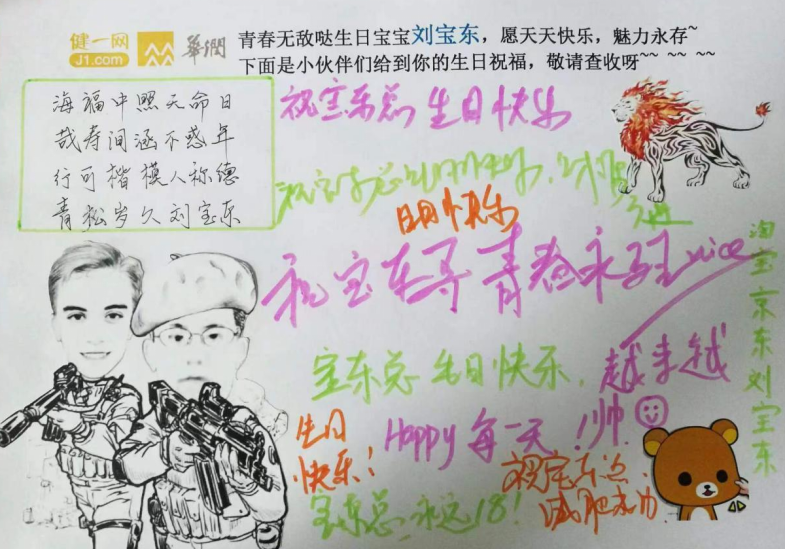 健一网
J1.com
华润
青春无敌哒生日宝宝刘宝东，愿天天快乐，魅力永存~
下面是小伙伴们给到你的生日祝福，敬请查收呀~~ ~~ ~~
海福中照天命日
哉寿间涵不惑年
行可楷模人称德
青松岁久刘宝东
祝宝东总 生日快乐
祝宝东总生日快乐，
日日快乐
祝宝东哥 青春永驻 nice
淘宝京东刘宝东
宝东总 生日快乐，
越来越
帅
生日
快乐！
Happy 每一天！
祝宝东总
减肥成功
宝东总，永远18！